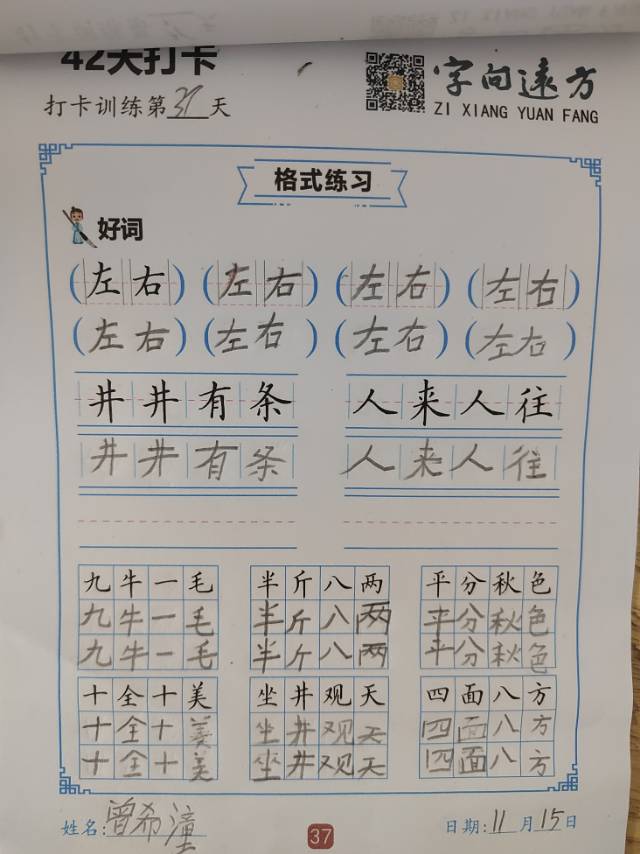 42天打卡
字向远方
打卡训练第37天
ZI XIANG YUAN FANG
格式练习
好词
(左右) (左右) (左右) (左右)
(左右) (左右) (左右) (左右)
井井有条 人来人往
井井有条 人来人往
九牛一毛 半斤八两 平分秋色
九牛一毛 半斤八两 平分秋色
九牛一毛 半斤八两 平分秋色
十全十美 坐井观天 四面八方
十全十美 坐井观天 四面八方
十全十美 坐井观天 四面八方
姓名:曾希潼 日期:11月15日
37